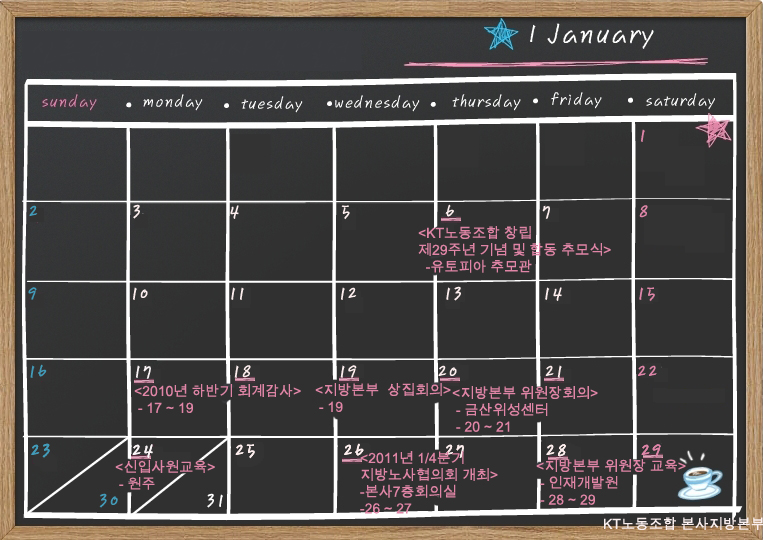 1 January
sunday • monday • tuesday • wednesday • thursday • friday • saturday
1
2 3 4 5 6 7 8
<KT노동조합 창립
제29주년 기념 및 합동 추모식>
-유토피아 추모관
9 10 11 12 13 14 15
16 17 18 19 20 21 22
<2010년 하반기 회계감사>
- 17 ~ 19
<지방본부 상집회의>
- 19
<지방본부 위원장회의>
- 금산위성센터
- 20 ~ 21
23 24 25 26 27 28 29
<신입사원교육>
- 원주
<2011년 1/4분기
지방노사협의회 개최>
-본사7층회의실
-26 ~ 27
<지방본부 위원장 교육>
- 인재개발원
- 28 ~ 29
30 31
KT노동조합 본사지방본부